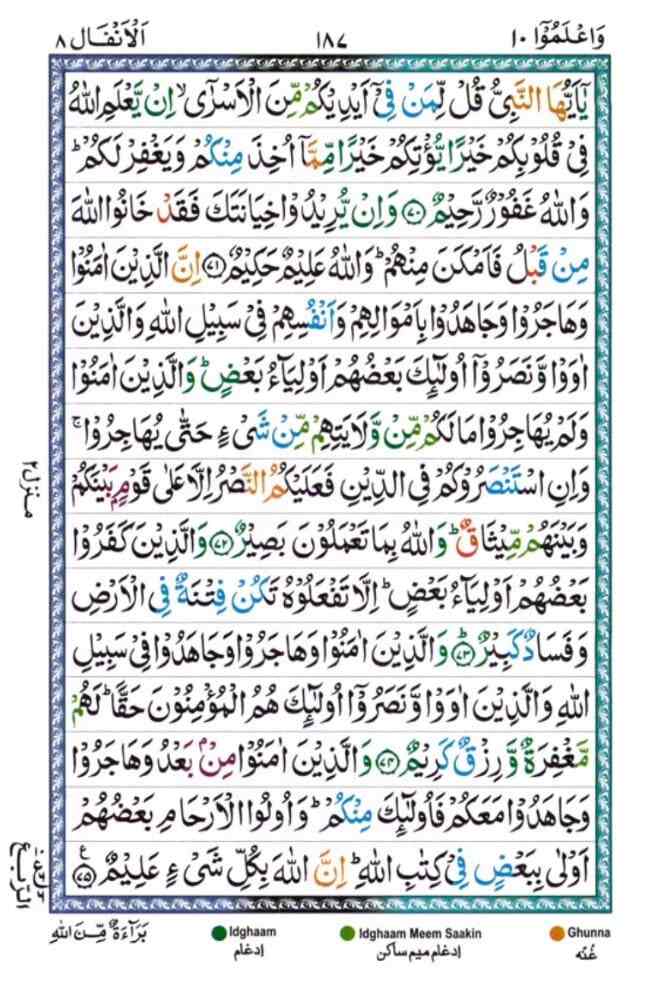 وَاعْلَمُوْۤا ۱۰ ۱۸۷ اَلْاَنْفَال ۸
يٰۤاَيُّهَا النَّبِىُّ قُلْ لِّمَنْ فِىْۤ اَيْدِيْكُمْ مِّنَ الْاَسْرٰٓى ۙ اِنْ يَّعْلَمِ اللّٰهُ
فِىْ قُلُوْبِكُمْ خَيْرًا يُّؤْتِكُمْ خَيْرًا مِّمَّاۤ اُخِذَ مِنْكُمْ وَيَغْفِرْ لَكُمْ ؕ
وَاللّٰهُ غَفُوْرٌ رَّحِيْمٌ ﴿۷۰﴾ وَاِنْ يُّرِيْدُوْا خِيَانَتَكَ فَقَدْ خَانُوا اللّٰهَ
مِنْ قَبْلُ فَاَمْكَنَ مِنْهُمْ ؕ وَاللّٰهُ عَلِيْمٌ حَكِيْمٌ ﴿۷۱﴾ اِنَّ الَّذِيْنَ اٰمَنُوْا
وَهَاجَرُوْا وَجَاهَدُوْا بِاَمْوَالِهِمْ وَاَنْفُسِهِمْ فِىْ سَبِيْلِ اللّٰهِ وَالَّذِيْنَ
اٰوَوْا وَّنَصَرُوْۤا اُولٰٓئِكَ بَعْضُهُمْ اَوْلِيَآءُ بَعْضٍ ؕ وَالَّذِيْنَ اٰمَنُوْا
وَلَمْ يُهَاجِرُوْا مَا لَكُمْ مِّنْ وَّلَايَتِهِمْ مِّنْ شَىْءٍ حَتّٰى يُهَاجِرُوْا ۚ
وَاِنِ اسْتَنْصَرُوْكُمْ فِى الدِّيْنِ فَعَلَيْكُمُ النَّصْرُ اِلَّا عَلٰى قَوْمٍۢ بَيْنَكُمْ
وَبَيْنَهُمْ مِّيْثَاقٌ ؕ وَاللّٰهُ بِمَا تَعْمَلُوْنَ بَصِيْرٌ ﴿۷۲﴾ وَالَّذِيْنَ كَفَرُوْا
بَعْضُهُمْ اَوْلِيَآءُ بَعْضٍ ؕ اِلَّا تَفْعَلُوْهُ تَكُنْ فِتْنَةٌ فِى الْاَرْضِ
وَفَسَادٌ كَبِيْرٌ ؕ ﴿۷۳﴾ وَالَّذِيْنَ اٰمَنُوْا وَهَاجَرُوْا وَجَاهَدُوْا فِىْ سَبِيْلِ
اللّٰهِ وَالَّذِيْنَ اٰوَوْا وَّنَصَرُوْۤا اُولٰٓئِكَ هُمُ الْمُؤْمِنُوْنَ حَقًّا ؕ لَهُمْ
مَّغْفِرَةٌ وَّرِزْقٌ كَرِيْمٌ ﴿۷۴﴾ وَالَّذِيْنَ اٰمَنُوْا مِنْۢ بَعْدُ وَهَاجَرُوْا
وَجَاهَدُوْا مَعَكُمْ فَاُولٰٓئِكَ مِنْكُمْ ؕ وَاُولُوا الْاَرْحَامِ بَعْضُهُمْ
اَوْلٰى بِبَعْضٍ فِىْ كِتٰبِ اللّٰهِ ؕ اِنَّ اللّٰهَ بِكُلِّ شَىْءٍ عَلِيْمٌ ﴿۷۵﴾ ع
منزل۲
الربع
بَرَآءَةٌ مِّنَ اللّٰهِ
Idghaam
ادغام
Idghaam Meem Saakin
ادغام میم ساکن
Ghunna
غُنّه